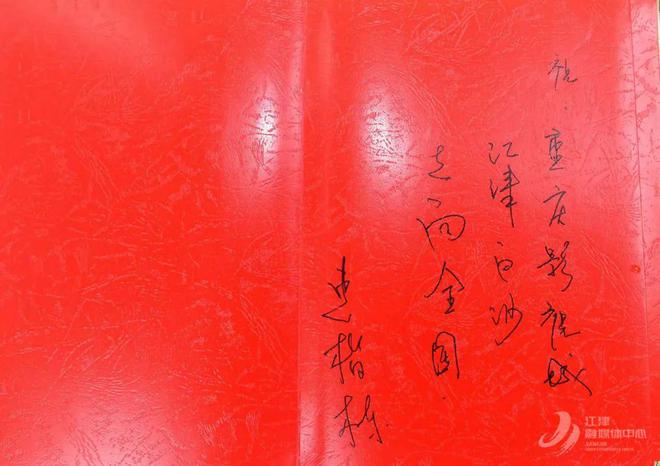 祝·重庆影视城
江津白沙
走向全国.
江津
融媒体中心
JIANGJIN